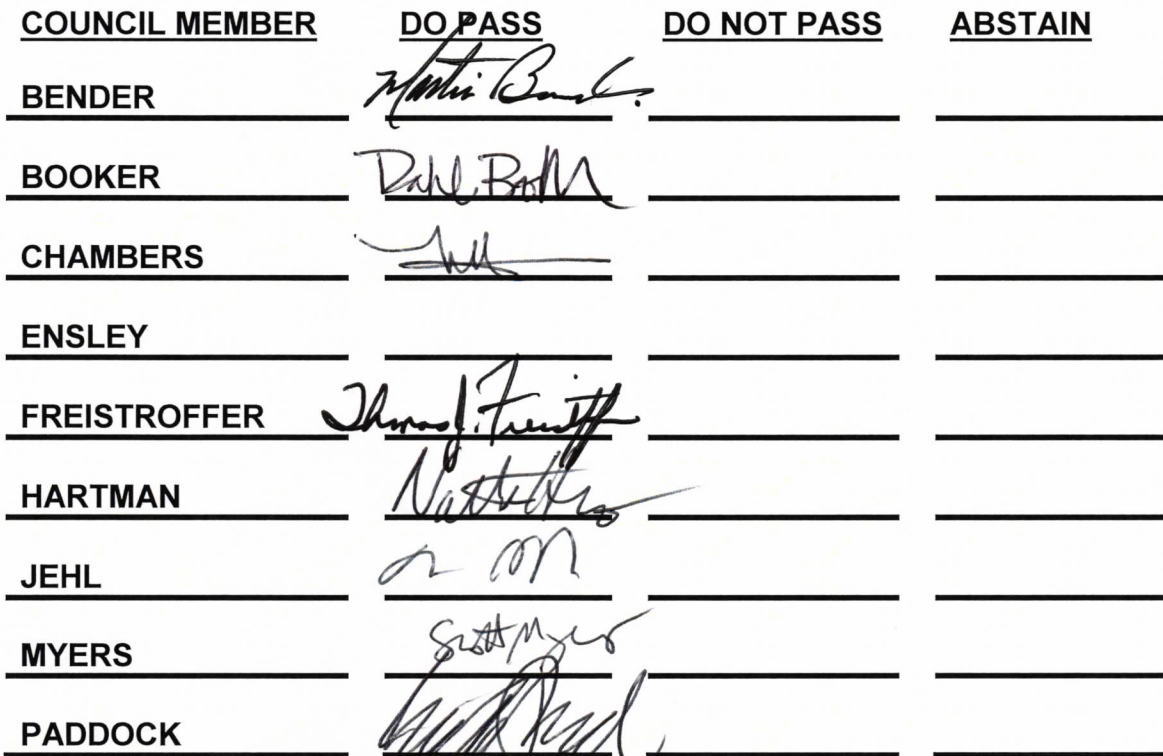 COUNCIL MEMBER DO PASS DO NOT PASS ABSTAIN
BENDER Martin
BOOKER
CHAMBERS
ENSLEY
FREISTROFFER Thomas J.
HARTMAN
JEHL
MYERS Scott Myers
PADDOCK